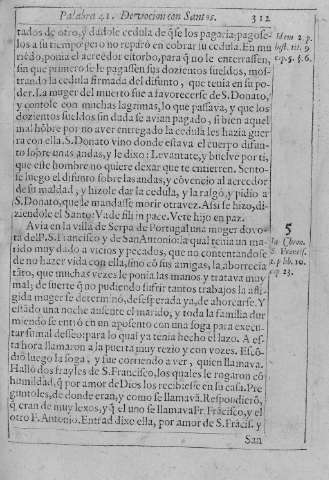 Palabra 41. Deuocion con Santos. 312
tados de otro, y dádole cedula de q̃ se los pagaria: pagoselos
los a su tiempo pero no reparò en cobrar su cedula. En mu
riẽdo, ponia el acreedor estorbo, para q̃ no le enterrassen,
sin que primero le pagassen sus dozientos sueldos, mos-
trando la cedula firmada del difunto, que tenia en su po-
der. La muger del muerto fue a fauorecerse de S. Donato,
y contole con muchas lagrimas, lo que passaua, y que los
dozientos sueldos sin duda se auian pagado, si bien aquel
mal hõbre por no auer entregado la cedula les hazia guer
ra con ella. S. Donato vino donde estaua el cuerpo difun-
to sobre vnas andas, y le dixo: Leuantate, y buelue por ti,
que este hombre no quiere dexar que te entierren. Sento-
se luego el difunto sobre las andas, y cõuencio al acreedor
de su maldad, y hizole dar la cedula, y la rasgò, y pidio a
S. Donato, que le mandasse morir otra vez. Assi se hizo, di-
ziendole el Santo: Vade fili in pace. Vete hijo en paz.
Auia en la villa de Serpa de Portugal vna muger deuo-
ta del P. S. Francisco y de San Antonio: la qual tenia vn ma-
rido muy dado a vicios y pecados, que no contentandose
de no hazer vida con ella, sino cõ sus amigas, la aborrecia
tãto, que muchas vezes le ponia las manos y trataua muy
mal; de suerte q̃ no pudiendo sufrir tantos trabajos la afli-
gida muger se determinò, desesperada ya, de ahorcarse. Y
estãdo vna noche ausente el marido, y toda la familia dur
miendo se entrò en vn aposento con vna soga para execu-
tar su mal desseo para lo qual ya tenia hecho el lazo. A es-
ta hora llamaron a la puerta muy rezio y con vozes. Escõ-
diò luego la soga, y fue corriendo a ver, quien llamaua.
Hallò dos frayles de S. Francisco, los quales le rogaron cõ
humildad, q̃ por amor de Dios los recibiesse en su casa. Pre
guntoles, de donde eran, y como se llamauã. Respondierõ,
q̃ eran de muy lexos, y q̃ el vno se llamaua Fr. Frãcisco, y el
otro F. Antonio. Entrad dixe ella, por amor de S. Frãcis. y
San
Idem 2. p.
hist. tit. 9
c. p. 5. §. 6.
5
la Chron.
S. Francis.
2. p. lib. 10.
cp. 23.